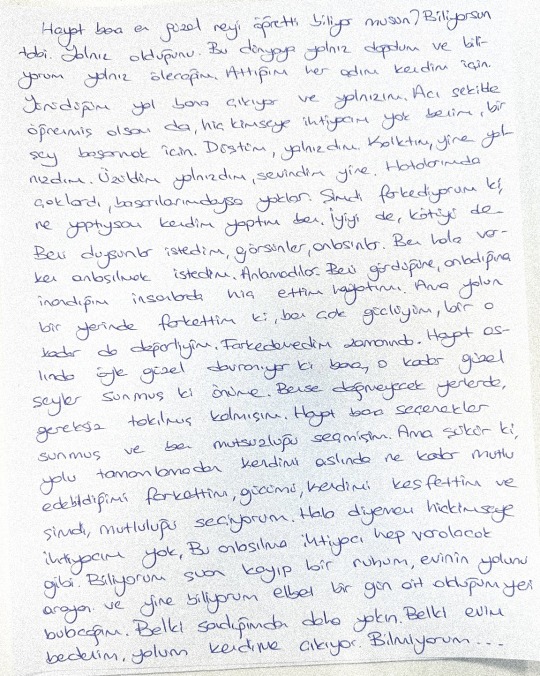 Hayat bana en güzel neyi öğretti biliyor musun? Biliyorsun
tabi. Yalnız olduğunu. Bu dünyaya yalnız doğdum ve bili-
yorum yalnız öleceğim. Attığım her adım kendim için.
Yürüdüğüm yol bana çıkıyor ve yalnızım. Acı şekilde
öğrenmiş olsam da, hiç kimseye ihtiyacım yok benim, bir
şey başarmak için. Düştüm, yalnızdım. Kalktım, yine yal-
nızdım. Üzüldüm yalnızdım, sevindim yine. Hatalarımda
çoklardı, başarılarımdaysa yoklar. Şimdi farkediyorum ki,
ne yaptıysam kendim yaptım ben. İyiyi de, kötüyü de-
Beni duysunlar istedim, görsünler, anlasınlar. Ben hala var-
ken anlaşılmak istedim. Anlamadılar. Beni gördüğüne, anladığına
inandığım insanlarda hiç ettim hayatımı. Ama yolun
bir yerinde farkettim ki, ben çok güçlüyüm, bir o
kadar da değerliyim. Farkedemedim zamanında. Hayat as-
lında öyle güzel davranıyor ki bana, o kadar güzel
şeyler sunmuş ki önüme. Bense değmeyecek yerlerde,
gereksiz takılmış kalmışım. Hayat bana seçenekler
sunmuş ve ben mutsuzluğu seçmişim. Ama şükür ki,
yolu tamamlamadan kendimi aslında ne kadar mutlu
edebildiğimi farkettim, gücümü, kendimi keşfettim ve
şimdi, mutluluğu seçiyorum. Hala diyemem hiçkimseye
ihtiyacım yok, Bu anlaşılma ihtiyacı hep varolacak
gibi. Biliyorum şuan kayıp bir ruhum, evinin yolunu
arayan ve yine biliyorum elbet bir gün ait olduğum yeri
bulacağım. Belki sandığımdan daha yakın. Belki evim
bedenim, yolum kendime çıkıyor. Bilmiyorum...